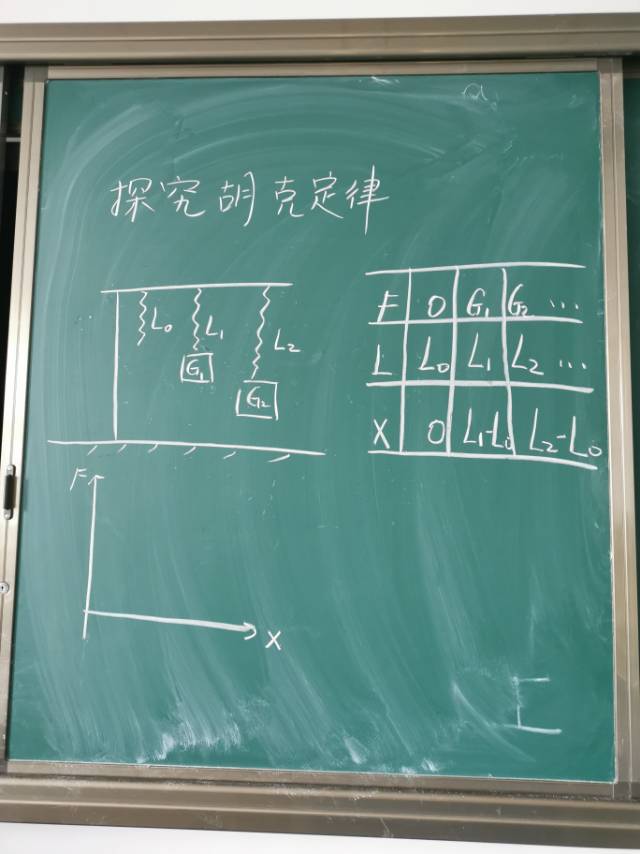 探究胡克定律
L₀ L₁ L₂
G₁ G₂
F 0 G₁ G₂ ...
L L₀ L₁ L₂ ...
X 0 L₁-L₀ L₂-L₀
F
X